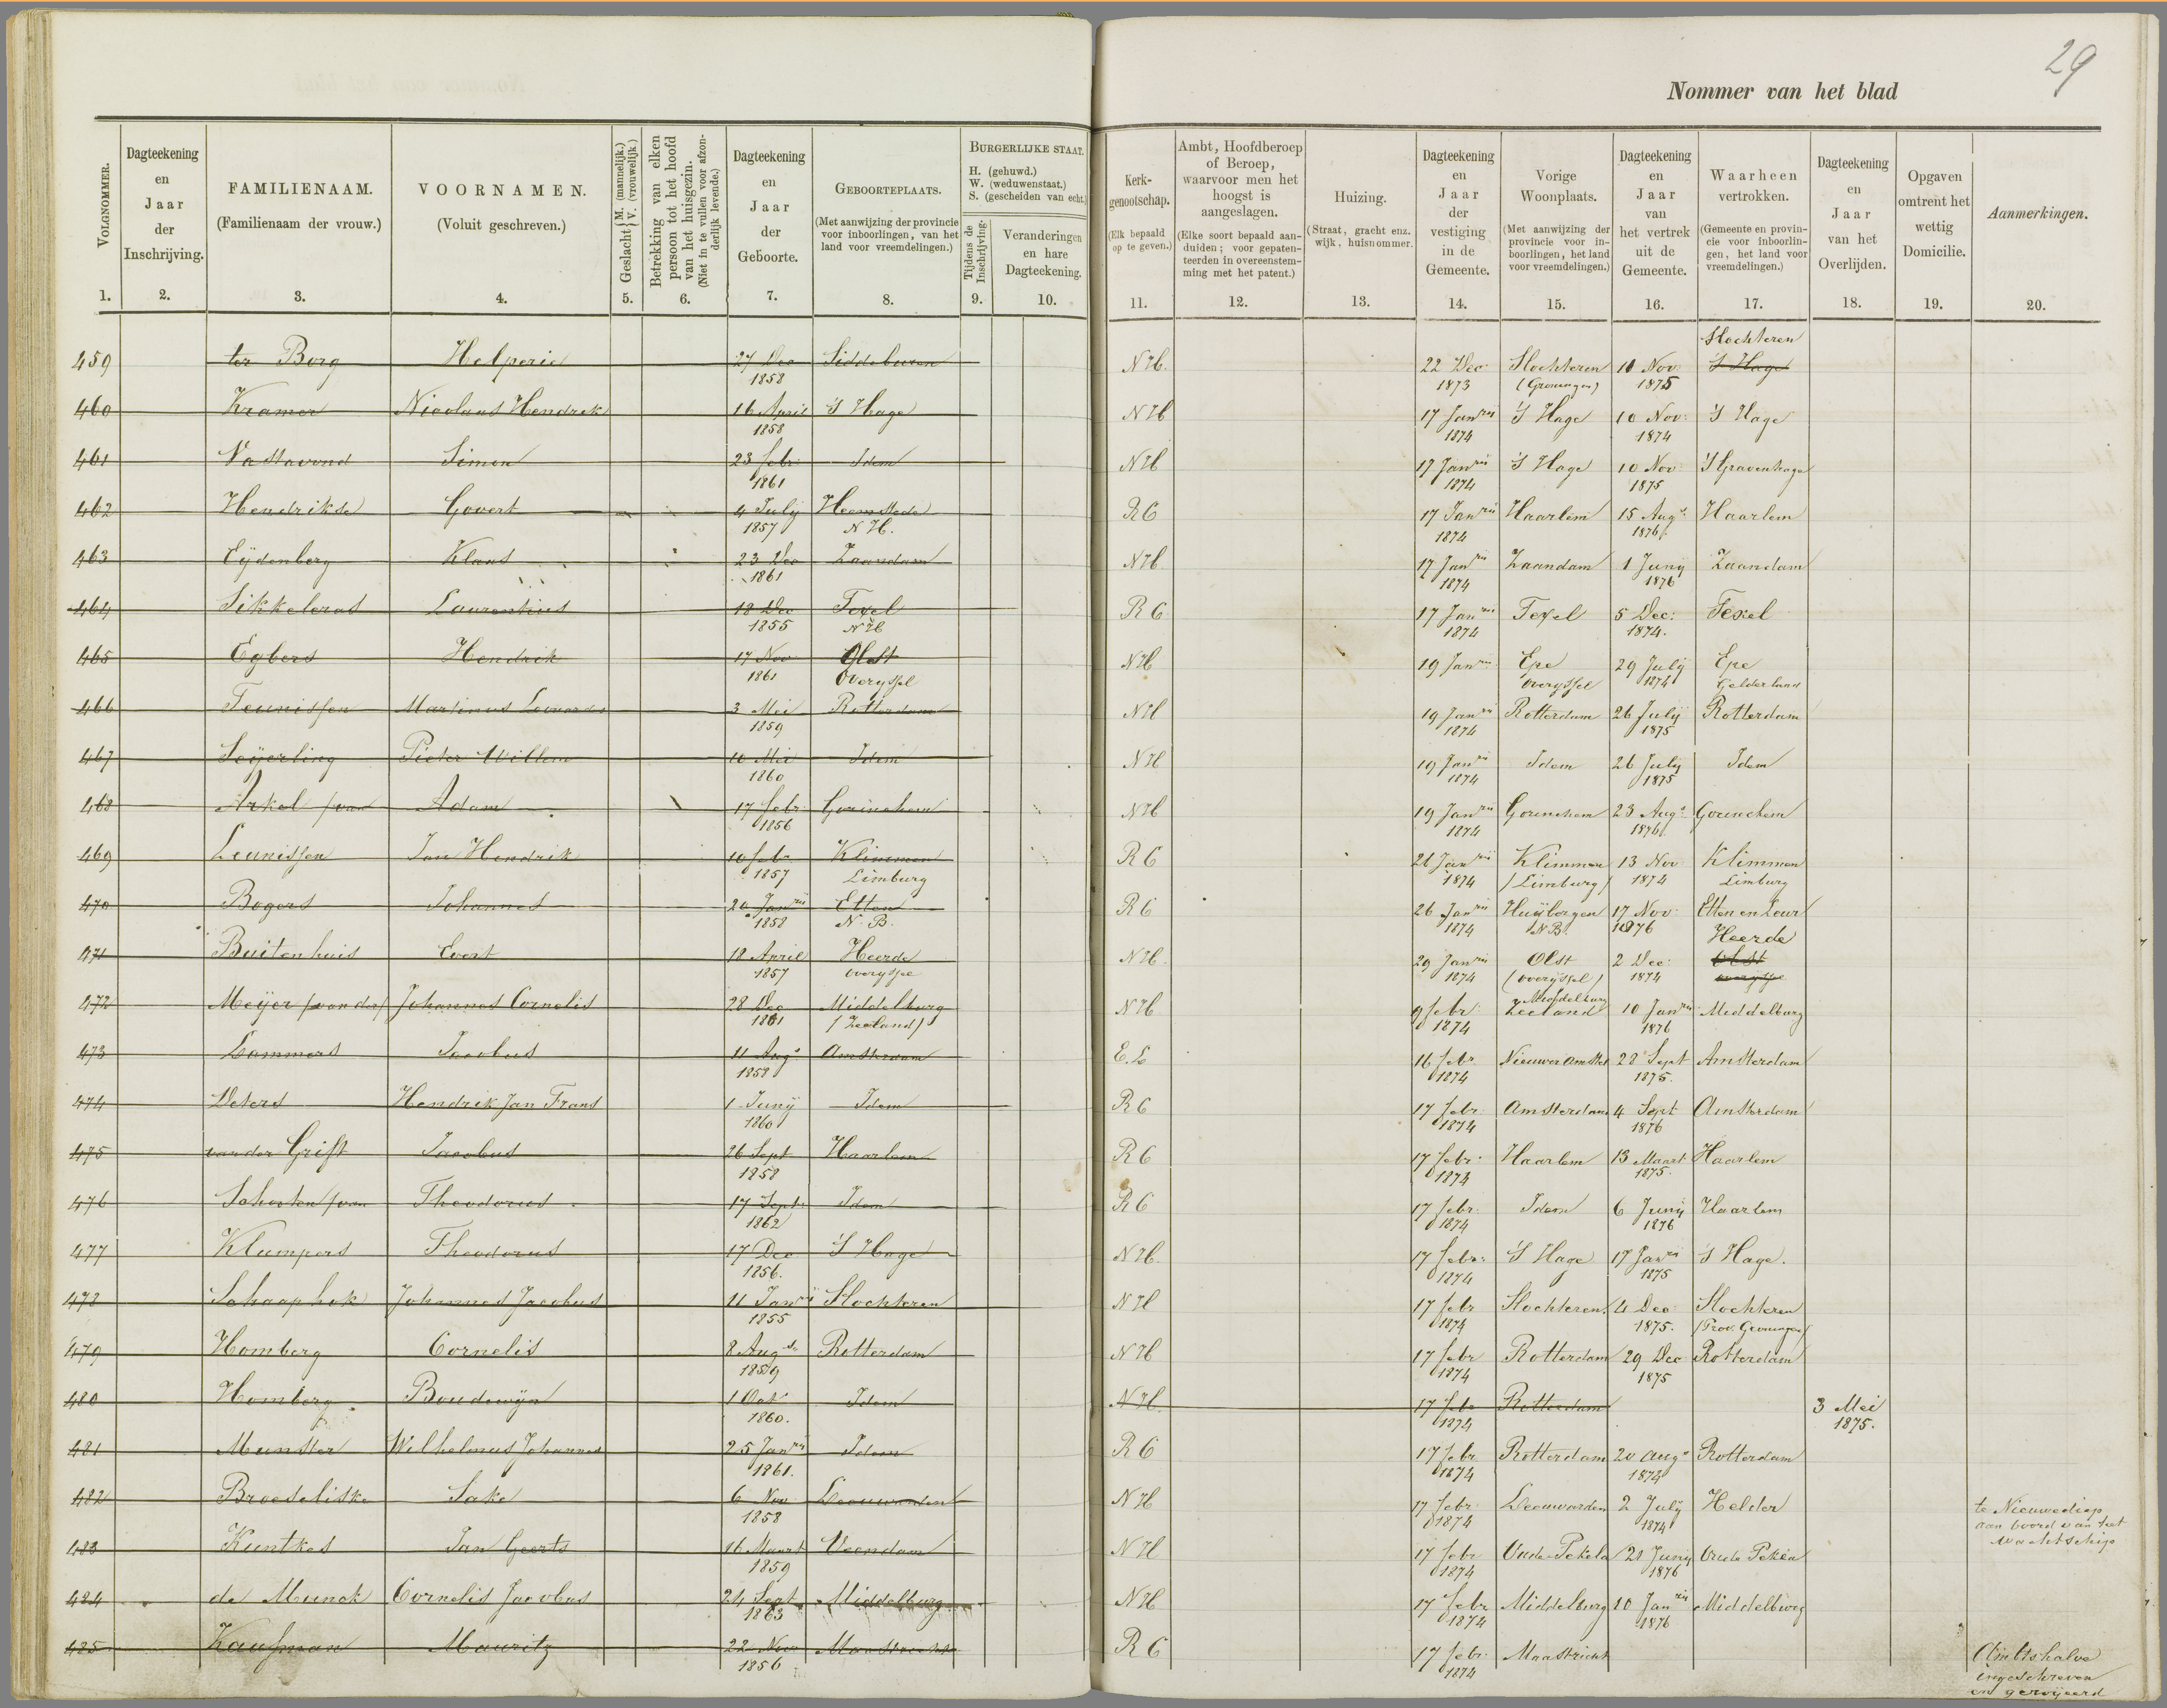 29
Nommer van het blad
VOLGNOMMER.
1.
Dagteekening
en
Jaar
der
Inschrijving.
2.
FAMILIENAAM.
(Familienaam der vrouw.)
3.
VOORNAMEN.
(Voluit geschreven.)
4.
Geslacht { M. (mannelijk.) V. (vrouwelijk.)
5.
Betrekking van elken
persoon tot het hoofd
van het huisgezin.
(Niet in te vullen voor afzon-
derlijk levende.)
6.
Dagteekening
en
Jaar
der
Geboorte.
7.
GEBOORTEPLAATS.
(Met aanwijzing der provincie
voor inboorlingen, van het
land voor vreemdelingen.)
8.
BURGERLIJKE STAAT.
H. (gehuwd.)
W. (weduwenstaat.)
S. (gescheiden van echt.)
Tijdens de
Inschrijving.
9.
Veranderingen
en hare
Dagteekening.
10.
Kerk-
genootschap.
(Elk bepaald
op te geven.)
11.
Ambt, Hoofdberoep
of Beroep,
waarvoor men het
hoogst is
aangeslagen.
(Elke soort bepaald aan-
duiden; voor gepaten-
teerden in overeenstem-
ming met het patent.)
12.
Huizing.
(Straat, gracht enz.
wijk, huisnommer.
13.
Dagteekening
en
Jaar
der
vestiging
in de
Gemeente.
14.
Vorige
Woonplaats.
(Met aanwijzing der
provincie voor in-
boorlingen, het land
voor vreemdelingen.)
15.
Dagteekening
en
Jaar
van
het vertrek
uit de
Gemeente.
16.
Waarheen
vertrokken.
(Gemeente en provin-
cie voor inboorlin-
gen, het land voor
vreemdelingen.)
17.
Dagteekening
en
Jaar
van het
Overlijden.
18.
Opgaven
omtrent het
wettig
Domicilie.
19.
Aanmerkingen.
20.
Slochteren
459 ter Borg Helperie 27 Dec Siddeburen N H. 22 Dec Slochteren 11 Nov 'S Hage
1858 1873 (Groningen) 1875
460 Kramer Nicolaas Hendrik 16 April 'S Hage N H 17 Janrii 'S Hage 10 Nov: 'S Hage
1858 1874 1874
461 Vastavond Simon 23 febr: Idem N H 17 Janrii 'S Hage 10 Nov: 'S Gravenhage
1861 1874 1875
462 Hendrikse Govert 4 July Heemstede R C 17 Janrii Haarlem 15 Augs Haarlem
1857 N H. 1874 1876
463 Eijdenberg Klaas 23 Dec Zaandam N H. 17 Janrii Zaandam 1 Juny Zaandam
1861 1874 1876
464 Sikkelerus Laurentius 18 Dec Texel R C 17 Janrii Texel 5 Dec: Texel
1855 N H 1874 1874.
465 Egbers Hendrik 17 Nov Olst N H 19 Janrii Epe 29 July Epe
1861 Overyssel Overyssel 1874 Gelderland
466 Teunissen Martinus Leonardus 3 Mei Rotterdam N H 19 Janrii Rotterdam 26 July Rotterdam
1859 1874 1875
467 Seijerling Pieter Willem 10 Mei Idem N H 19 Janrii Idem 26 July Idem
1860 1874 1875
468 Arkel /van Adam 17 febr: Gorinchem N H 19 Janrii Gorinchem 23 Augs Gorinchem
1856 1874 1876
469 Leunissen Jan Hendrik 10 febr Klimmen R C 26 Janrii Klimmen 13 Nov Klimmen
1857 Limburg 1874 /Limburg/ 1874 Limburg
470 Bogers Johannes 20 Janrii Etten R C 26 Janrii Huijbergen 17 Nov: Etten en Leur
1858 N. B. 1874 N B. 1876 Heerde
471 Buitenhuis Evert 18 April Heerde N H. 29 Janrii Olst 2 Dec: Olst
1857 overysse 1874 (overijssel) 1874 overysse
472 Meijer /van der/ Johannes Cornelis 28 Dec Middelburg N H 9 febr: Middelburg Zeeland 10 Janrii Middelburg
1861 /Zeeland/ 1874 1876
473 Lammers Jacobus 11 Augs Amsterdam E. L 16 febr Nieuwer Amstel 28 Sept Amsterdam
1858 1874 1875.
474 Deters Hendrik Jan Frans 1 Junij Idem R C 17 febr: Amsterdam 4 Sept Amsterdam
1860 1874 1876
475 van der Grift Jacobus 26 Sept Haarlem R C 17 febr: Haarlem 13 Maart Haarlem
1858 1874 1875.
476 Schooten /van Theodorus 17 Sept: Idem R C 17 febr: Idem 6 Juny Haarlem
1862 1874 1876
477 Klumpers Theodorus 17 Dec 'S Hage N H. 17 febr: 'S Hage 17 Janrii 'S Hage.
1856. 1874 1875
478 Schaaphok Johannes Jacobus 11 Janrii Slochteren N H 17 febr Slochteren 4 Dec: Slochteren
1855 1874 1875. /Prov. Groningen/
479 Homberg Cornelis 8 Augs Rotterdam N H 17 febr Rotterdam 29 Dec Rotterdam
1859 1874 1875
480 Homberg Boudewijn 1 Oct Idem N H. 17 febr Rotterdam 3 Mei
1860. 1874 1875.
481 Munster Wilhelmus Johannes 25 Janrii Idem R C 17 febr Rotterdam 20 Augs Rotterdam
1861. 1874 1874
482 Broedeliske Sake 6 Nov Leeuwarden N H 17 febr: Leeuwarden 2 July Helder te Nieuwediep
1858 1874 1874 aan boord van het
wachtschip
483 Kuntkes Jan Geerts 16 Maart Veendam N H 17 febr Oude Pekela 28 Juny Oude Pekela
1859 1874 1876
484 de Munck Cornelis Jacobus 24 Sept Middelburg N H 17 febr Middelburg 10 Janrii Middelburg
1863 1874 1876
485 Kaufman Mauritz 22 Nov Maastricht R C 17 febr: Maastricht Ambtshalve
1856 1874 ingeschreven
en geroijeerd